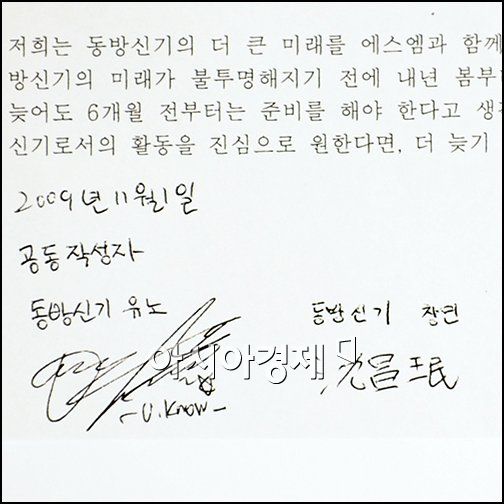 저희는 동방신기의 더 큰 미래를 에스엠과 함께
방신기의 미래가 불투명해지기 전에 내년 봄부
늦어도 6개월 전부터는 준비를 해야 한다고 생
신기로서의 활동을 진심으로 원한다면, 더 늦기
2009년 11월 1일
공동작성자
동방신기 유노
동방신기 창민
아시아경제
沈昌珉
-U.Know-